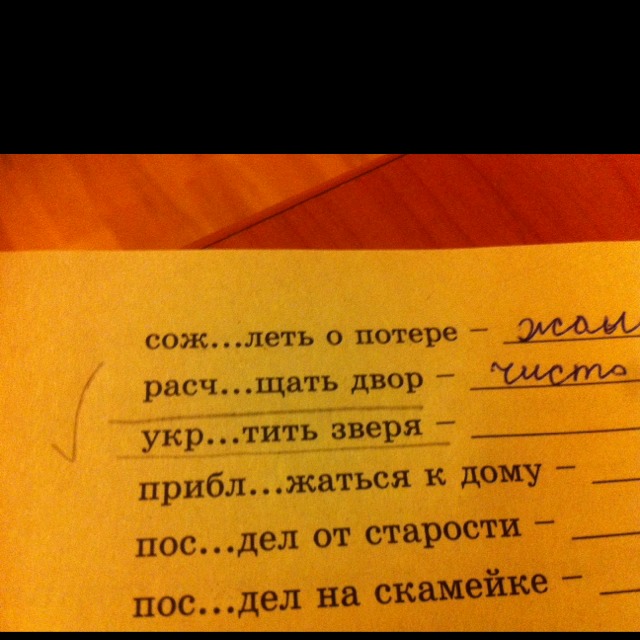 сож...леть о потере –
расч...щать двор – чисто
укр...тить зверя –
прибл...жаться к дому –
пос...дел от старости –
пос...дел на скамейке –